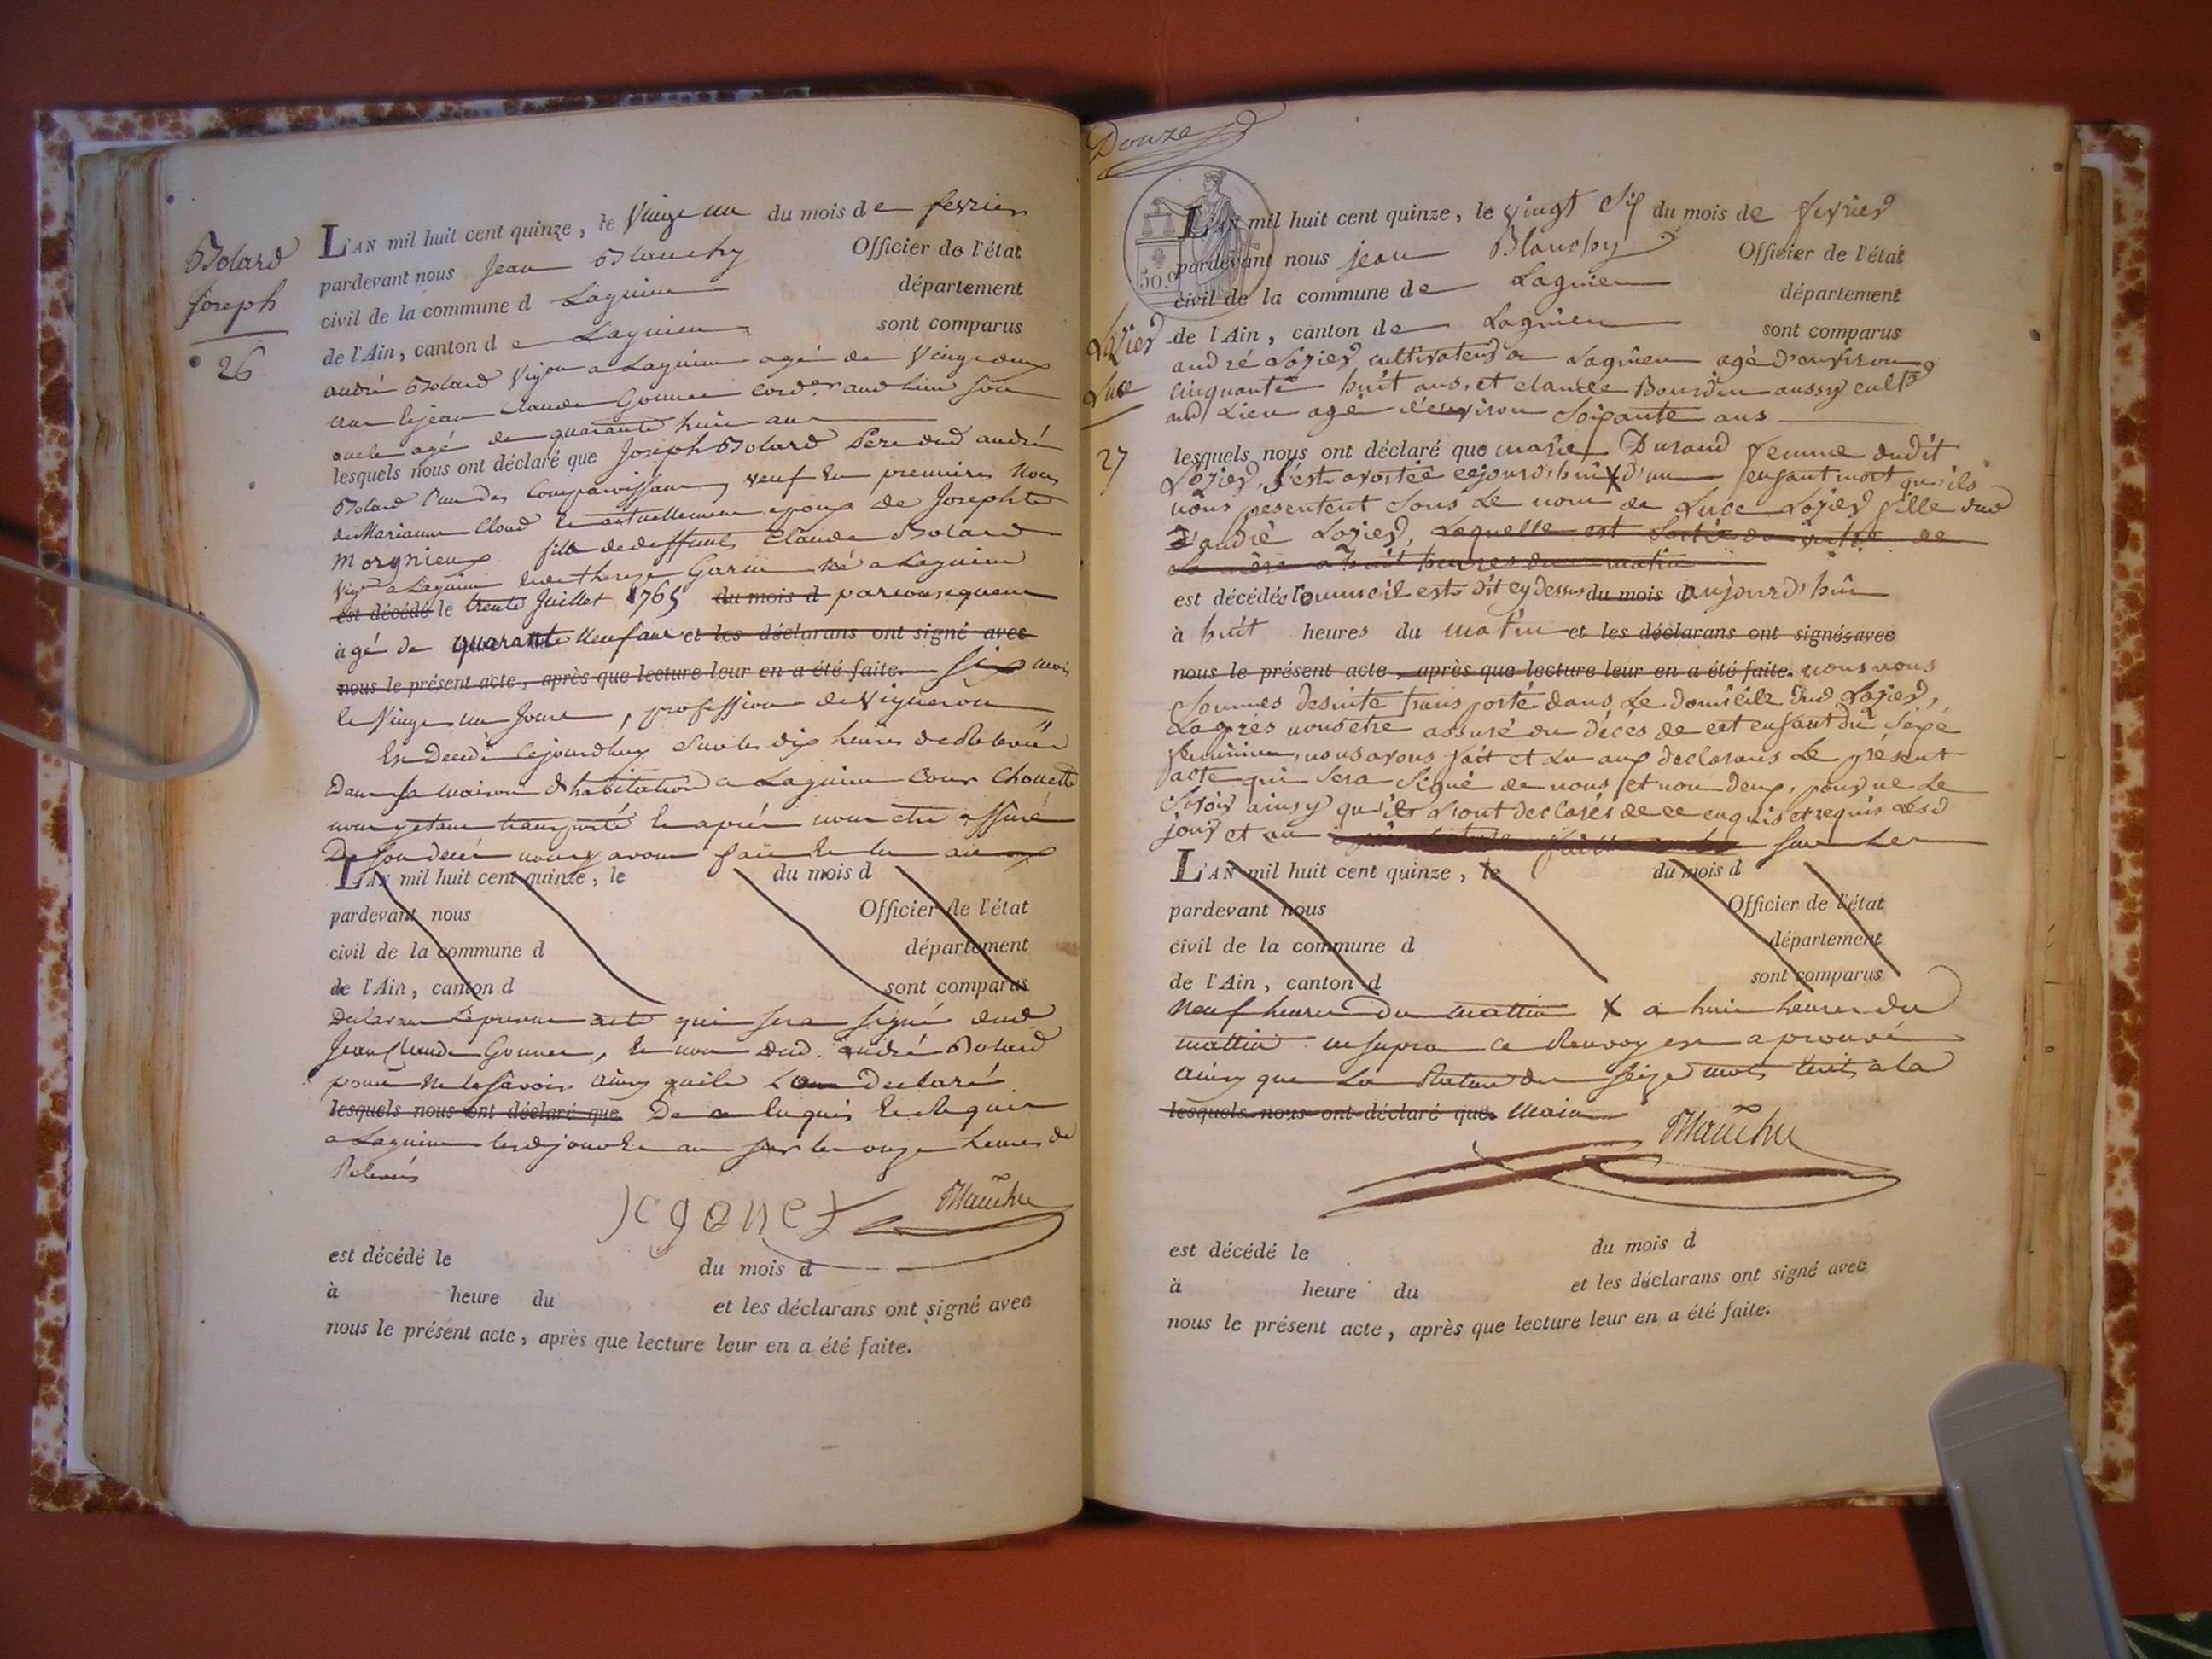 Bolard
Joseph
26
L'AN mil huit cent quinze, le Vingt un du mois de fevrier
pardevant nous Jean Blanchy Officier de l'état
civil de la commune d Lagnieu département
de l'Ain, canton de Lagnieu sont comparus
andré Bolard Vigon a Lagnieu agé de Vingt deux
ans et jean Claude Gonnet cord.er aud lieu son
oncle agé de quarante huit ans
lesquels nous ont déclaré que Joseph Bolard Pere dud andré
Bolard l'un des Comparoissans, veuf en premieres Noces
de Marianne Cloud et actuellement epoux de Josephte
Morgnieux fils de deffunts Claude Bolard
Vig.on a Lagnieu et de thereze Garin né a Lagnieu
est décédé le trente Juillet 1765 du mois d par consequent
àgé de quarante neuf ans et les déclarans ont signé avec
nous le présent acte, après que lecture leur en a été faite. six mois
et Vingt un Jours, profession de Vigneron
Est Decedé Cejourdhuy Sur les dix heures de
Dans sa maison d'habitation a Lagnieu Cour Chouette
nous y etant transporté et aprés nous etre assuré
De son decés nous avons fait et lu aux
L'AN mil huit cent quinze, le du mois d
pardevant nous Officier de l'état
civil de la commune d département
de l'Ain, canton d sont comparus
Declarans le present acte qui sera signé dud
Jean Claude Gonnet, et non dud. andré Bolard
pour ne le savoir ainsy qu'il l'a Declaré
lesquels nous ont déclaré que De ce enquis et Requis
a Lagnieu lesd jour et an sur les onze heures de
Relevés
jcgonet Blanchy
est décédé le du mois d
à heure du et les déclarans ont signé avec
nous le présent acte, après que lecture leur en a été faite.
Douze
50.c
Lozier
Luce
27
L'AN mil huit cent quinze, le vingt Six du mois de fevrier
pardevant nous jean Blanchy Officier de l'état
civil de la commune de Lagnieu département
de l'Ain, canton de Lagnieu sont comparus
andré Lozier cultivateur a Lagnieu agé d'environ
cinquante huit ans, et claude Bourdin aussy cult.r
aud Lieu agé d'environ Soixante ans
lesquels nous ont déclaré que marie Durand femme dudit
Lozier, S'est avortée cejourd'huî X d'un enfant mort qu'ils
nous presentent Sous Le nom de Luce Lozier fille dud
d'andré Lozier, Laquelle est Sortie du ventre de
La mère a huit heures du matin
est décédée comme il est dit cy dessus du mois d aujourd'huî
à huit heures du matin et les déclarans ont signés avec
nous le présent acte, après que lecture leur en a été faite. nous nous
Sommes desuite transporté dans Le domicile dud Lozier,
Et après nous etre assuré du décès de cet enfant du Séxe
féminin, nous avons fait et Lu aux declarans Le présent
acte qui Sera Signé de nous et non deux, pour ne Le
Savoir ainsy qu'ils L'ont declarés de ce enquis et requis Lesd
jour et an sur Les
L'AN mil huit cent quinze, le du mois d
pardevant nous Officier de l'état
civil de la commune d département
de l'Ain, canton d sont comparus
Neuf heures Du mattin X a huit heures du
mattin ut supra Ce Renvoy est aprouvé
ainsy que La Rature de Seize mots Ecrits a la
lesquels nous ont déclaré que main
Blanchy
est décédé le du mois d
à heure du et les déclarans ont signé avec
nous le présent acte, après que lecture leur en a été faite.